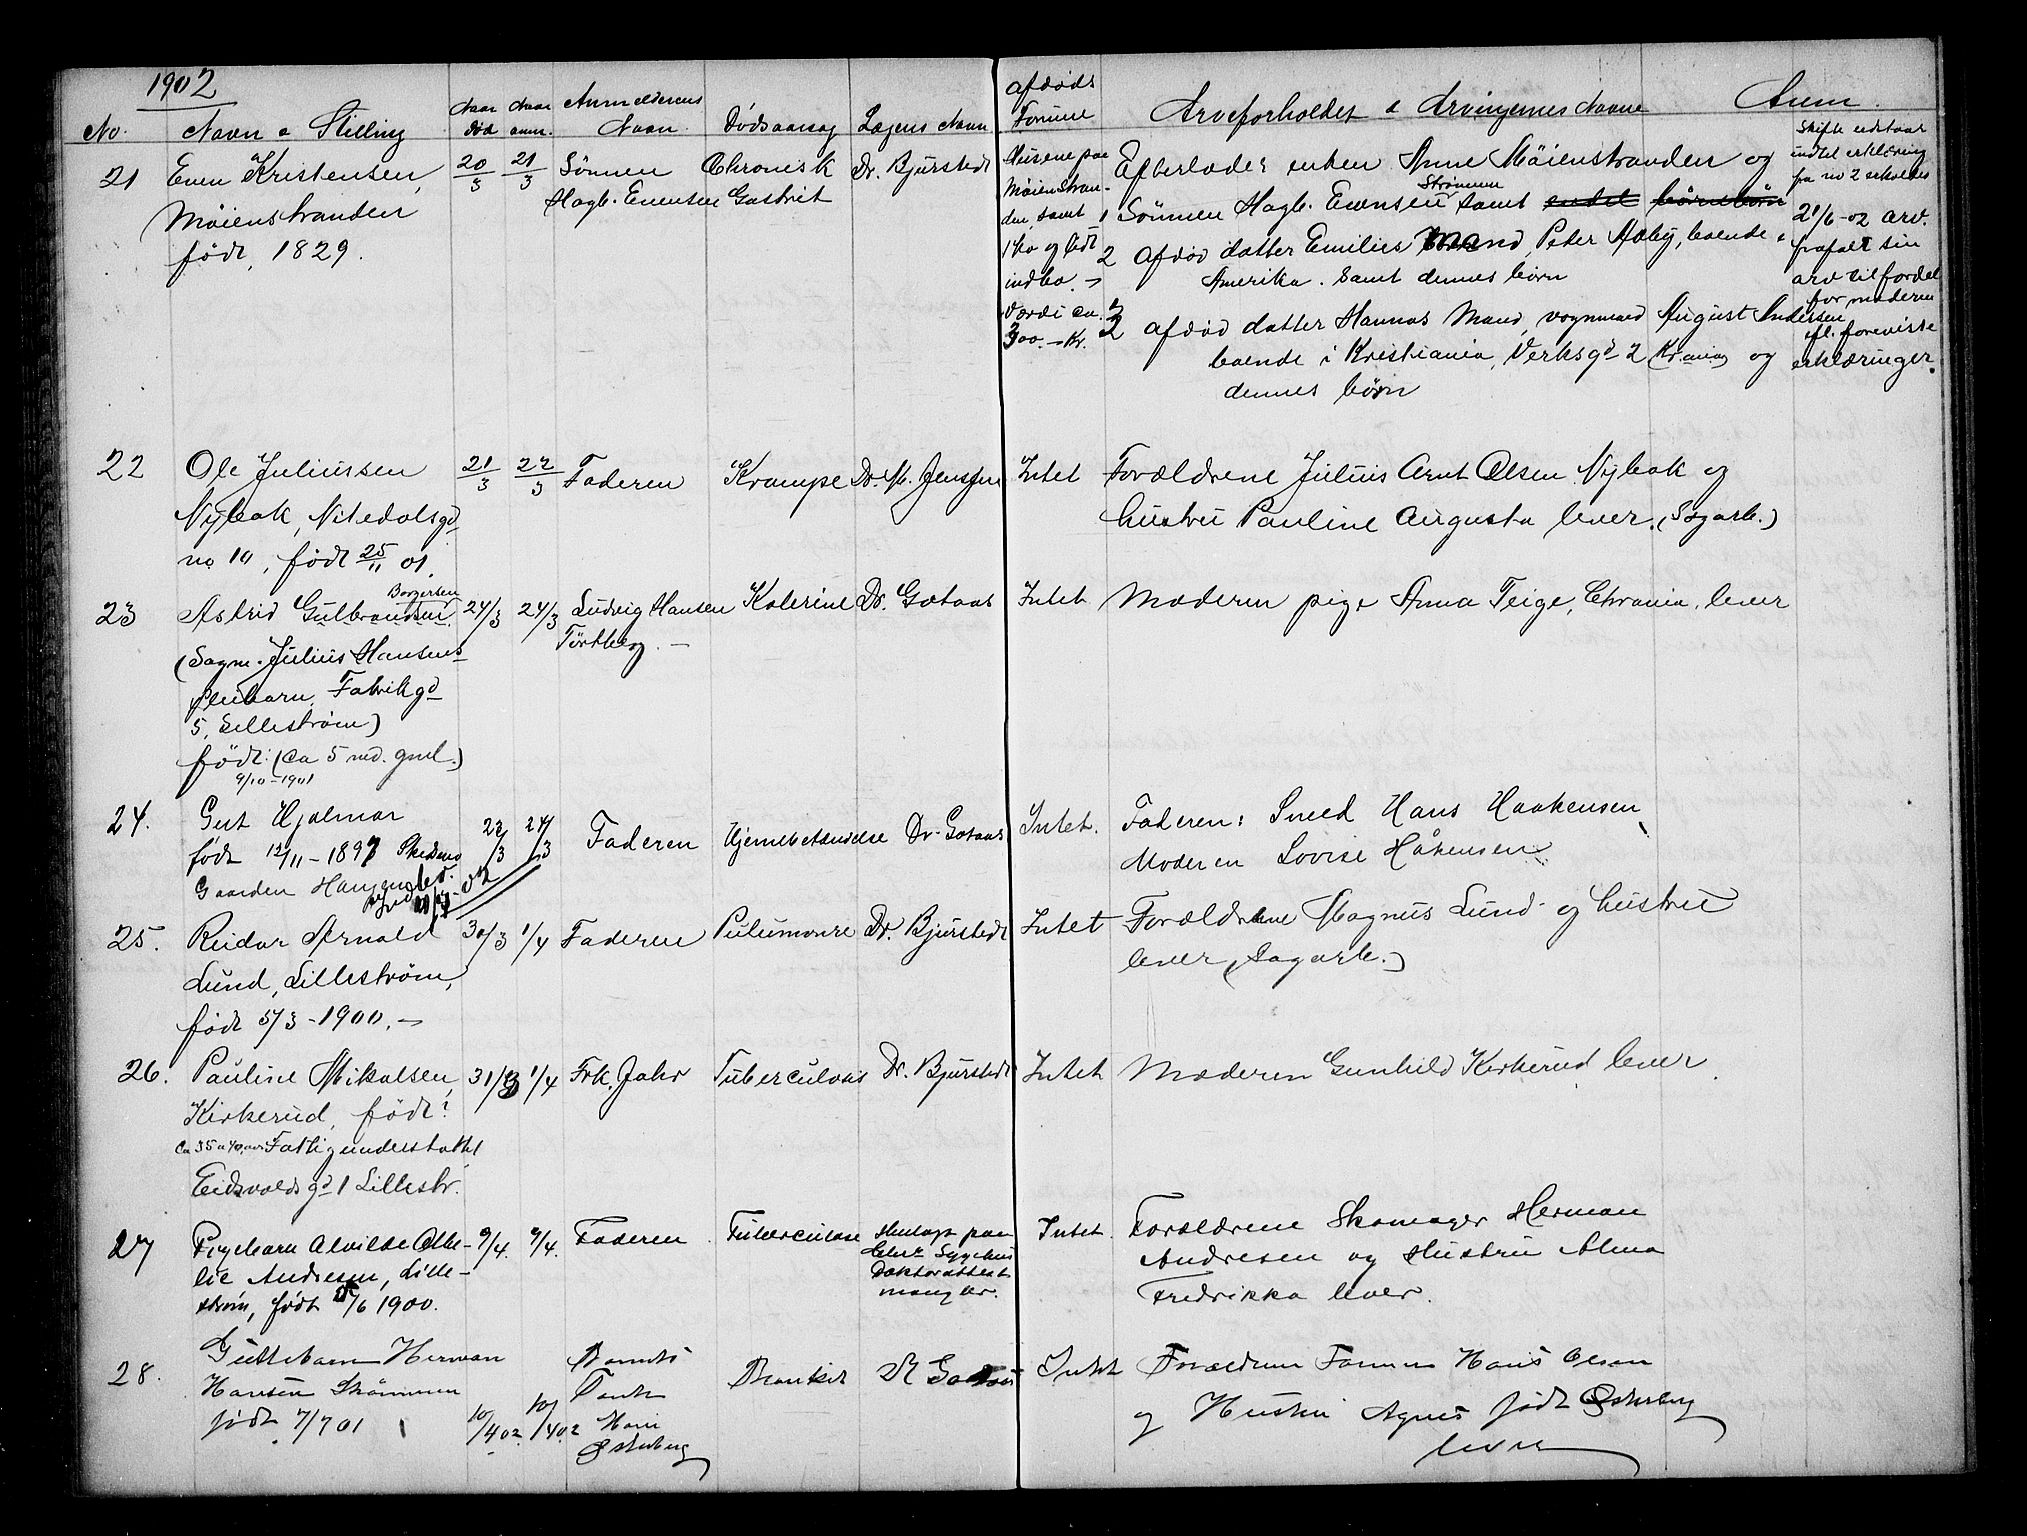 1902
No. Navn & Stilling Naar død Naar anm. Anmelderens Navn Dødsaarsag Lægens Navn afdøds Formue Arveforholdet & Arvingernes Navne Anm.
21 Even Kristensen, 20/3 21/3 Sønnen Chronisk Dr. Bjurstedt
Møienstranden Hagb. Evensen Gastrit
født, 1829.
Husene paa
Møienstran-
den, samt
1 ko og lidt
indbo. -
Værdi ca.
300.- Kr.
Efterlader enken Anne Møienstranden og
1 Sønnen Hagb. Evensen Strømmen samt endel børnebørn
2 afdød datter Emilies Mand, Peter Aaby, boende i
Amerika. samt dennes børn
3 afdød datter Hannas Mand, vognmand August Andersen
boende i Kristiania, Verksgd 2 (Kr.ania) og
dennes børn
Skifte udstaar
indtil erklæring
fra no 2 erholdes
21/6-02 arv.
frafalt sin
arv til fordel
for moderen
ifl. foreviste
erklæringer.
22 Ole Juliussen 21/3 22/3 Faderen Krampe Dr. M. Jenssen Intet Forældrene Julius Arnt Olsen Nybak og
Nybak, Nitedalsgd hustru Pauline Augusta lever. (Sagarb.)
no 10, født 25/11 01.
23 Astrid Gulbrandsen Borgersen 24/3 24/3 Ludvig Hansen Kolerine Dr. Gotaas Intet Moderen pige Anna Teige, Chrania, lever
(Sagm. Julius Hansens Törtberg. -
pleiebarn, Fabrikgd
5, Lillestrøm)
født: (ca 5 md. gml.)
9/10-1901
24. Gut Hjalmar 22/3 24/3 Faderen Hjernebetændelse Dr. Gotaas Intet. Faderen: Smed Hans Haakensen
født 12/11-1897 Skedsmo Moderen Lovise Håkensen
Gaarden
25. Reidar Arnold 30/3 1/4 Faderen Pulumonre Dr. Bjurstedt Intet Forældrene Magnus Lund og hustru
Lund, Lillestrøm, lever (Sagarb.)
født 5/3-1900. -
26. Pauline Mikalsen, 31/3 1/4 Frk. Jahr Tuberculosis Dr. Bjurstedt Intet Moderen Gunhild Kirkerud lever.
Kirkerud, født?
Ca 35 a 40, Fattigunderstøttet
Eidsvoldsgd 1 Lillestr.
27 Pigebarn Alvilde Othe- 9/4. 9/4. Faderen Tuberculose Henlagt paa Intet. Forældrene Skomager Herman
lie Andresen, Lille- Sygehus Andresen og Hustru Alma
strøm, født 5/6 1900. Doktorattest Fredrikka lever.
mangler.
28. Guttebarn Herman Barnets Bronkit Dr Gotaas Intet Forældrene Formen Hans Olsen
Hansen Strømmen 10/4 02 10/4 02 Tante og Hustru Agnes født Østerberg
født 7/7 01 Marie lever
Østerberg